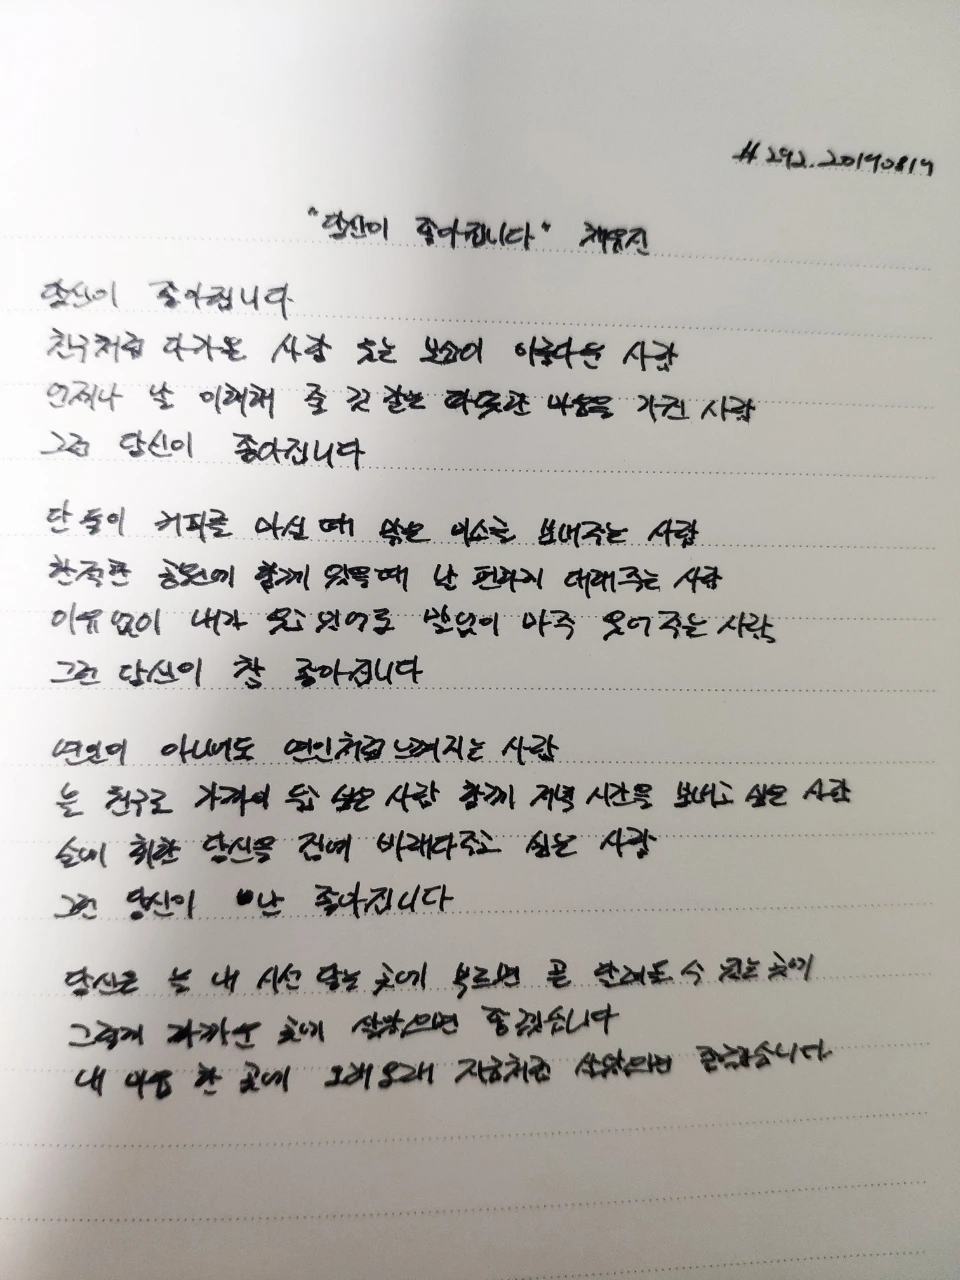 #292. 20190819
"당신이 좋아집니다" 채유진
당신이 좋아집니다
친구처럼 다가온 사람 웃는 모습이 아름다운 사람
언제나 날 이해해 줄 것 같은 따뜻한 마음을 가진 사람
그런 당신이 좋아집니다
단 둘이 커피를 마실 때 밝은 미소를 보내주는 사람
한적한 공원에 함께 있을 때 날 편하게 대해주는 사람
이유 없이 내가 웃고 있어도 말없이 마주 웃어주는 사람
그런 당신이 참 좋아집니다
연인이 아니어도 연인처럼 느껴지는 사람
늘 친구로 가까이 두고 싶은 사람 함께 저녁 시간을 보내고 싶은 사람
술에 취한 당신을 집에 바래다주고 싶은 사람
그런 당신이 난 좋아집니다
당신은 늘 내 시선 닿는 곳에 부르면 곧 달려올 수 있는 곳에
그렇게 가까운 곳에 살았으면 좋겠습니다
내 마음 한 곳에 오래오래 지금처럼 살았으면 좋겠습니다